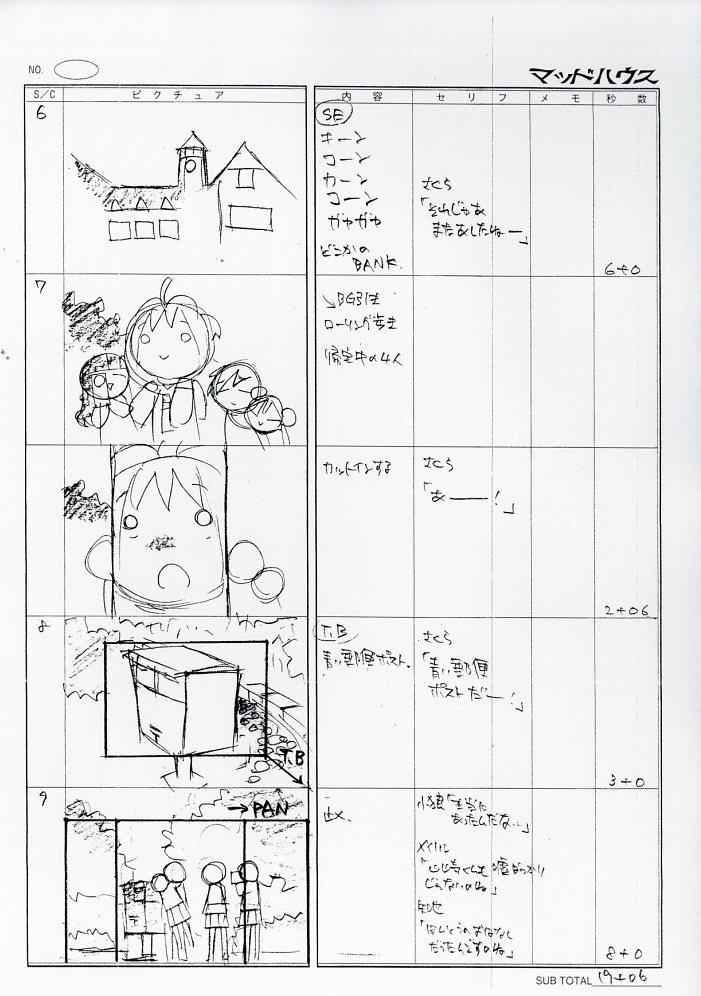 NO.
マッドハウス
S/C ピクチュア 内容 セリフ メモ 秒数
6
SE
キーン
コーン
カーン
コーン
ガヤガヤ
どこかの
BANK.
さくら
「それじゃあ
またあしたねー」
6+0
7
↘BG引き
ローリング歩き
帰宅中の4人
カットインする
さくら
「あ――!」
2+06
8
T.B
T.B
青い郵便ポスト.
さくら
「青い郵便
ポストだー!」
3+0
9
→PAN
止メ.
小狼「本当に
あったんだな…」
メイリン
「山崎くんも嘘ばっかり
じゃないのね」
知世
「ほんとうのおはなし
だったんですのね」
8+0
SUB TOTAL 19+06